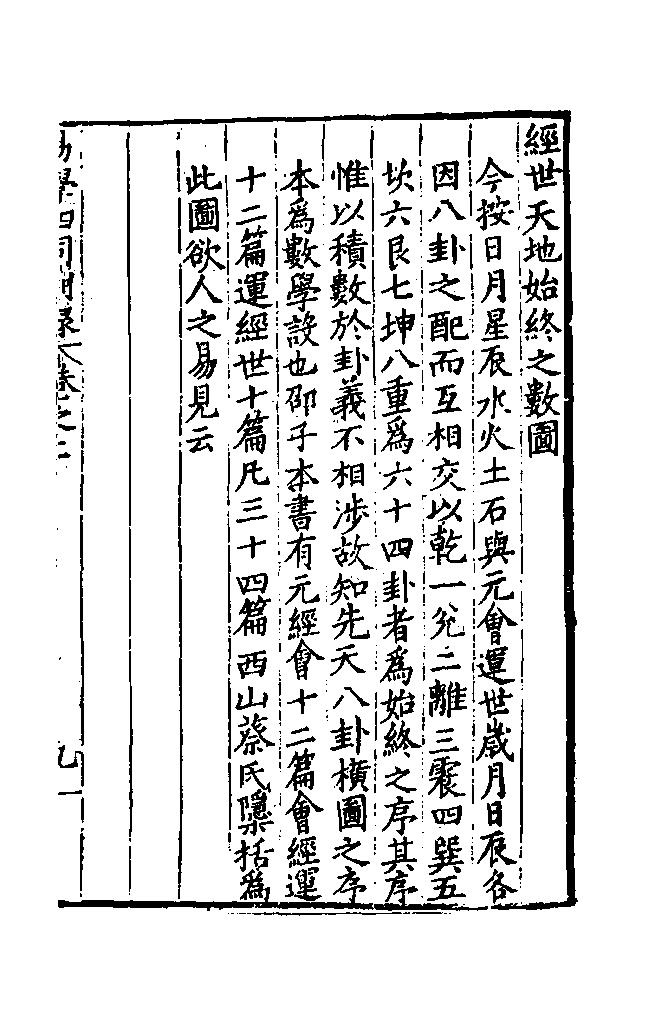 經世天地始終之數圖
今按日月星辰水火土石與元會運世歲月日辰各
因八卦之配而互相交以乾一兊二離三震四巽五
坎六艮七坤八重爲六十四卦者爲始終之序其序
惟以積數於卦義不相涉故知先天八卦橫圖之序
本爲數學設也邵子本書有元經會十二篇會經運
十二篇運經世十篇凡三十四篇西山蔡氏隱括爲
此圖欲人之易見云